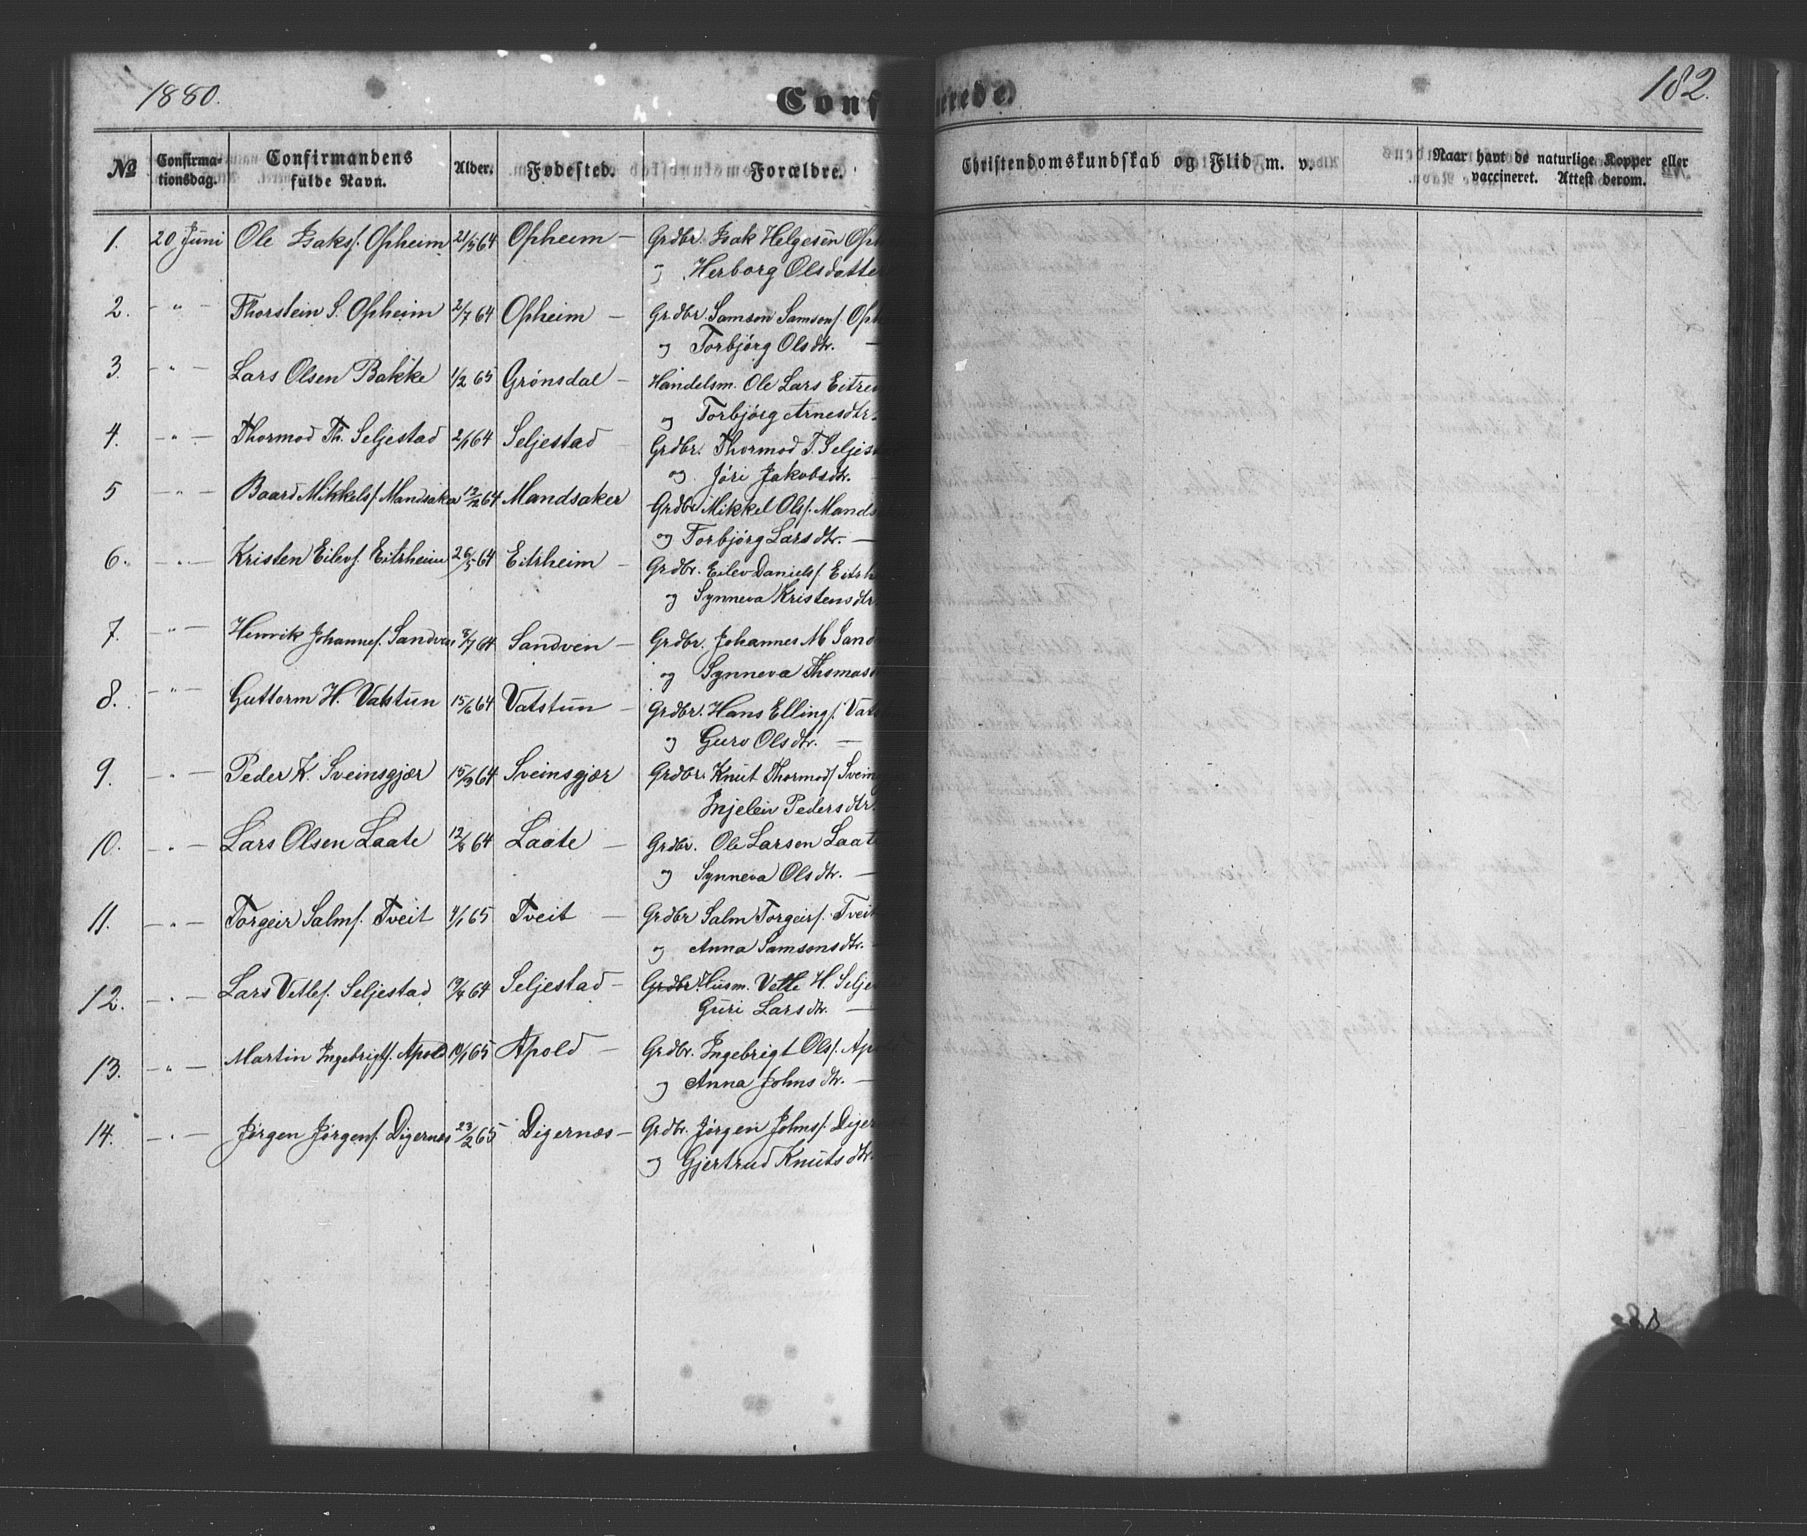 1880.
Conf
erede.
182.
No
Confirma-
tionsdag.
Confirmandens
fulde Navn.
Alder.
Fødested.
Forældre.
Christendomskundskab og Flid m. v.
Naar havt de naturlige Kopper eller
vaccineret. Attest derom.
1. 20 Juni Ole Isaks. Opheim 21/5 64 Opheim — Grdbr. Isak Helgesen Oph
og Herborg Olsdatter
2. — " — Thorstein S. Opheim 2/7 64 Opheim — Grdbr Samson Samsons. Oph
og Torbjørg Olsdtr. —
3. — " — Lars Olsen Bakke 1/2 65 Grønsdal — Handelsm. Ole Lars Eitrei
og Torbjørg Arnesdtr
4. — " — Thormod Th. Seljestad 2/1 64 Seljestad — Grdbr. Thormod T. Seljes
og Jøri Jakobsdtr. —
5 — " — Baard Mikkels. Mandsaker 12/2 64 Mandsaker Grdbr Mikkel Ols. Mands
og Torbjørg Larsdtr. —
6. — " — Kristen Eilevs. Eitrheim 26/5 64 Eitrheim — Grdbr. Eilev Daniels. Eitrh
og Synneva Kristensdtr
7. — " — Henrik Johannes. Sandven 3/7 64 Sandven — Grdbr. Johannes M Sand
og Synneva Thomasd
8. — " — Guttorm H. Vatstun 15/6 64 Vatstun — Grdbr. Hans Ellings. Vats
og Guro Olsdtr. —
9. — " — Peder K. Sveinsgjær 15/3 64 Sveinsgjær Grdbr. Knut Thormods. Sveing
Injeleiv Pedersdtr.
10. — " — Lars Olsen Laate 12/8 64 Laate — Grdbr. Ole Larsen Laat
og Synneva Olsdtr. —
11. — " — Torgeir Salms. Tveit 4/1 65 Tveit — Grdbr Salm Torgeirs. Tveit
og Anna Samsonsdtr. —
12. — " — Lars Vetles. Seljestad 64 Seljestad — Grdbr. Husm. Vetle H. Selje
Guri Larsdtr. —
13. — " — Martin Ingebrigts. Apold 10/1 65 Apold — Grdbr. Ingebrigt Ols. Ap
og Anna Johnsdtr. —
14. — " — Jørgen Jørgens. Digernes 23/2 65 Digernæs — Grdbr. Jørgen Johns. Diger
og Gjertrud Knutsdtr.